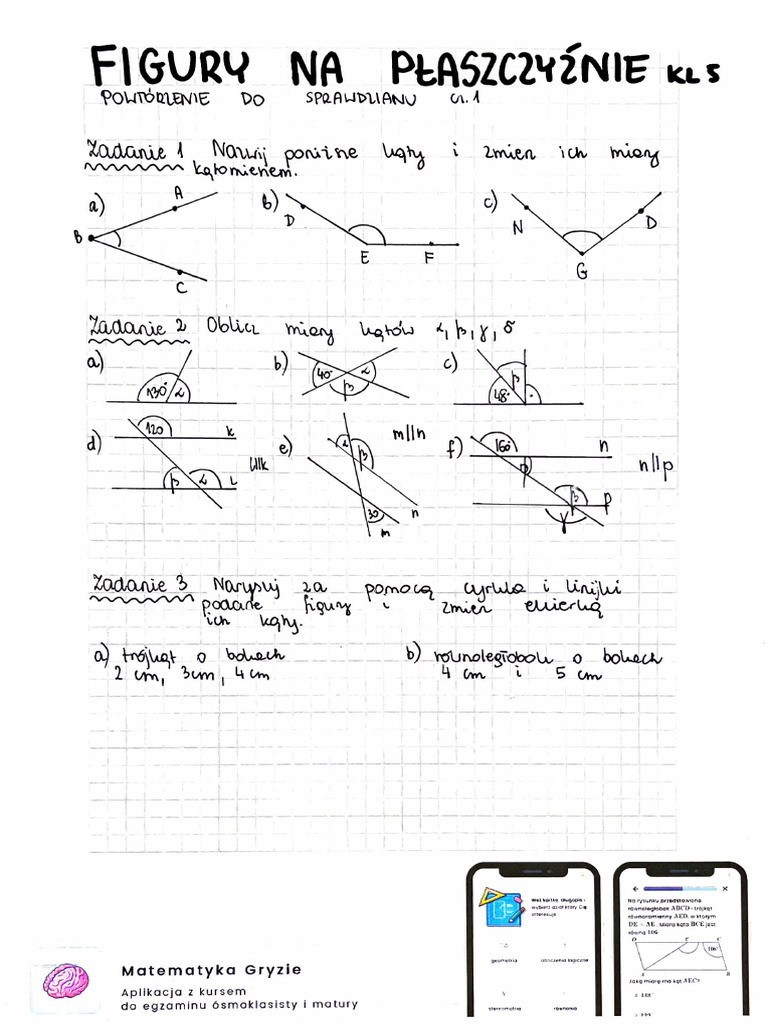 FIGURY NA PŁASZCZYŹNIE KL 5
POWTÓRZENIE DO SPRAWDZIANU CZ. 1
Zadanie 1 Nazwij poniższe kąty i zmierz ich miary
kątomierzem.
a) A B C
b) D E F
c) N G D
Zadanie 2 Oblicz miary kątów α, β, γ, δ
a) 130° α
b) 40° α β
c) 48° β
d) 120 k β α L l||k
e) α β 30 n m m||n
f) 160° n β β p γ n||p
Zadanie 3 Narysuj za pomocą cyrkla i linijki
podane figury i zmierz ekierką
ich kąty.
a) trójkąt o bokach
2 cm, 3cm, 4cm
b) równoległobok o bokach
4 cm i 5 cm
Matematyka Gryzie
Aplikacja z kursem
do egzaminu ósmoklasisty i matury
Weź kartkę, długopis i
wybierz dział który Cię
interesuje
geometria
obliczenia logiczne
stereometria
równania
Na rysunku przedstawiono
równoległobok ABCD i trójkąt
równoramienny AED, w którym
DE = AE. Miara kąta BCE jest
równa 106
D E C
106°
A B
Jaką miarę ma kąt AEC?